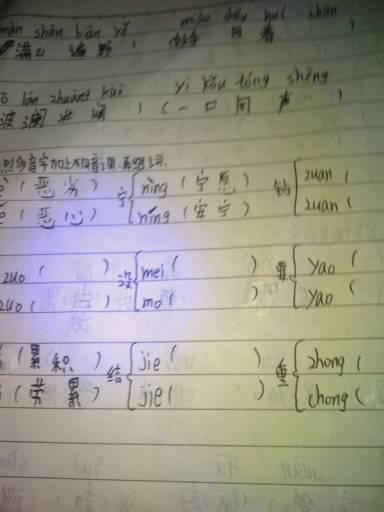 màn shān biàn yě miào shǒu huí chūn
满山遍野 妙手回春
ō lán zhuàng kuò yì kǒu tóng shēng
波澜壮阔 (一口同声)
列多音字加上不同音调,再组词.
(恶劣) 宁 nìng (宁愿) 钻 zuan (
(恶心) níng (安宁) zuan (
zuo ( ) 没 mei ( ) 要 yao (
zuo ( ) mo ( ) yao (
(累积) 结 jie ( ) 重 zhong (
(劳累) jie ( ) chong (